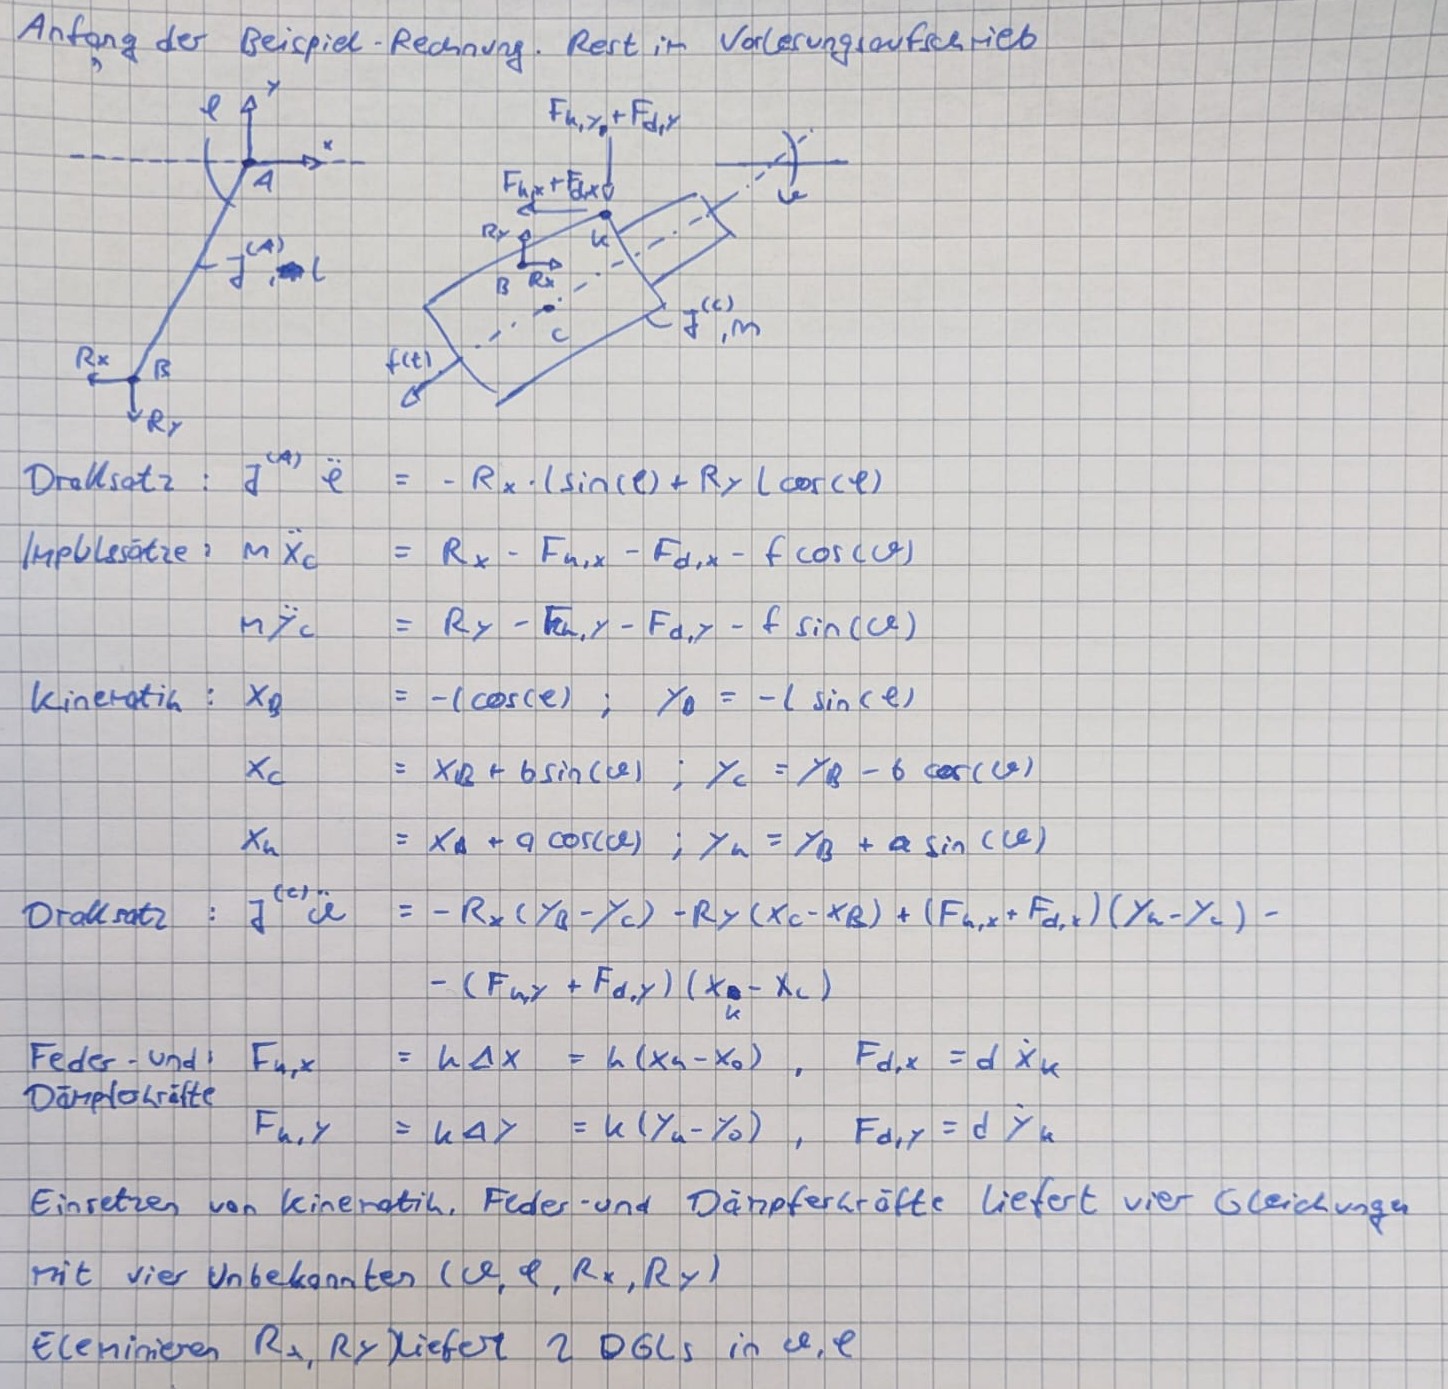 Anfang der Beispiel-Rechnung. Rest im Vorlesungsaufschrieb
φ y
x
A
J^(A), l
Rx B
Ry
F_k,y + F_d,y
F_k,x + F_d,x
K
Ry
B Rx
C
J^(C), m
f(t)
ϑ
Drallsatz: J^(A) φ̈ = - Rx · l sin(φ) + Ry l cos(φ)
Impulssätze: m ẍ_C = R_x - F_k,x - F_d,x - f cos(ϑ)
m ÿ_C = R_y - F_k,y - F_d,y - f sin(ϑ)
Kinematik: x_B = -l cos(φ) ; y_B = -l sin(φ)
x_C = x_B + b sin(ϑ) ; y_C = y_B - b cos(ϑ)
x_k = x_B + a cos(ϑ) ; y_k = y_B + a sin(ϑ)
Drallsatz: J^(C) ϑ̈ = - R_x (y_B - y_C) - R_y (x_C - x_B) + (F_k,x + F_d,x)(y_k - y_C) -
- (F_k,y + F_d,y)(x_k - x_C)
Feder- und: F_k,x = k Δx = k (x_k - x_0) , F_d,x = d ẋ_k
Dämpferkräfte
F_k,y = k Δy = k (y_k - y_0) , F_d,y = d ẏ_k
Einsetzen von Kinematik, Feder- und Dämpferkräfte liefert vier Gleichungen
mit vier Unbekannten (ϑ, φ, Rx, Ry)
Eleminieren Rx, Ry) liefert 2 DGLs in ϑ, φ